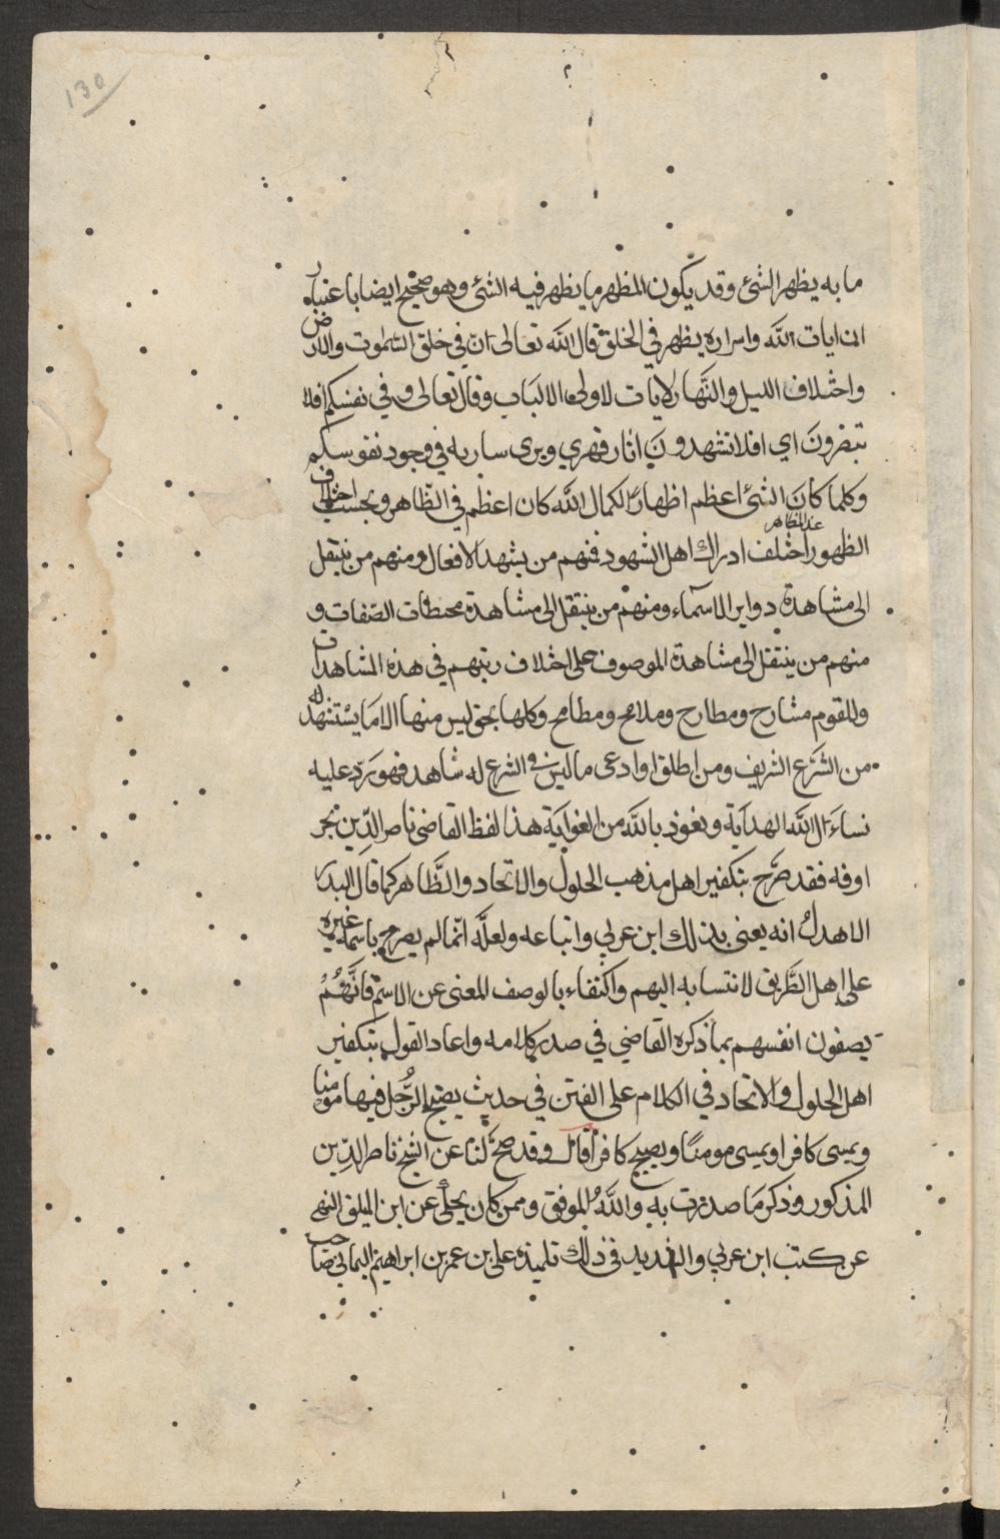 130
ما به يظهر الشئ وقد يكون المظهر ما يظهر فيه الشئ وهو صحيح ايضا باعتبار
ان ايات الله واسراره يظهر في الخلق قال الله تعالى ان في خلق السموت والارض
واختلاف الليل والنهار لايات لاولى الالباب وقال تعالى وفي نفسكم افلا
تبصرون اي افلا تشهدون اثار قهري وبرى ساريه في وجود نفوسكم
وكلما كان الشئ اعظم اظهارا لكمال الله كان اعظم في الظاهر وبحسب اختلاف
عند المظاهر
الظهور اختلف ادراك اهل الشهود فمنهم من يشهد الافعال ومنهم من ينتقل
الى مشاهدة دواير الاسماء ومنهم من ينتقل الى مشاهدة محطات الصفات و
منهم من ينتقل الى مشاهدة الموصوف على اختلاف رتبهم في هذه المشاهدات
وللقوم مشارح ومطارح وملامح ومطامح وكلها بحق ليس منها الا ما يستشهد له
من الشرع الشريف ومن اطلق او ادعى ما ليس في الشرع له شاهد فهو رد عليه
نساءل الله الهداية ونعوذ بالله من الغواية هذا لفظ القاضى ناصر الدين بحر
اوفه فقد صرح بتكفير اهل مذهب الحلول والاتحاد والظاهر كما قال البدر
الاهدل انه يعنى بذلك ابن عربي واتباعه ولعله انما لم يصرح باسمه غيره
على اهل الطريق لانتسابه اليهم واكتفاء بالوصف المغنى عن الاسم فانهم
يصفون انفسهم بما ذكره القاضي في صدر كلامه واعاد القول بتكفير
اهل الحلول والاتحاد في الكلام على الفتن في حديث يصبح الرجل فيها مومنا
ويمسى كافرا ويمسى مومنا ويصبح كافرا قال وقد صح لنا عن الشيخ ناصر الدين
المذكور وذكر ما صدرت به والله الموفق وممن كان يحكى عن ابن الميلق النهى
عن كتب ابن عربي والتهديد في ذلك تلميذه على بن عمر بن ابراهيم اليماني صاحب